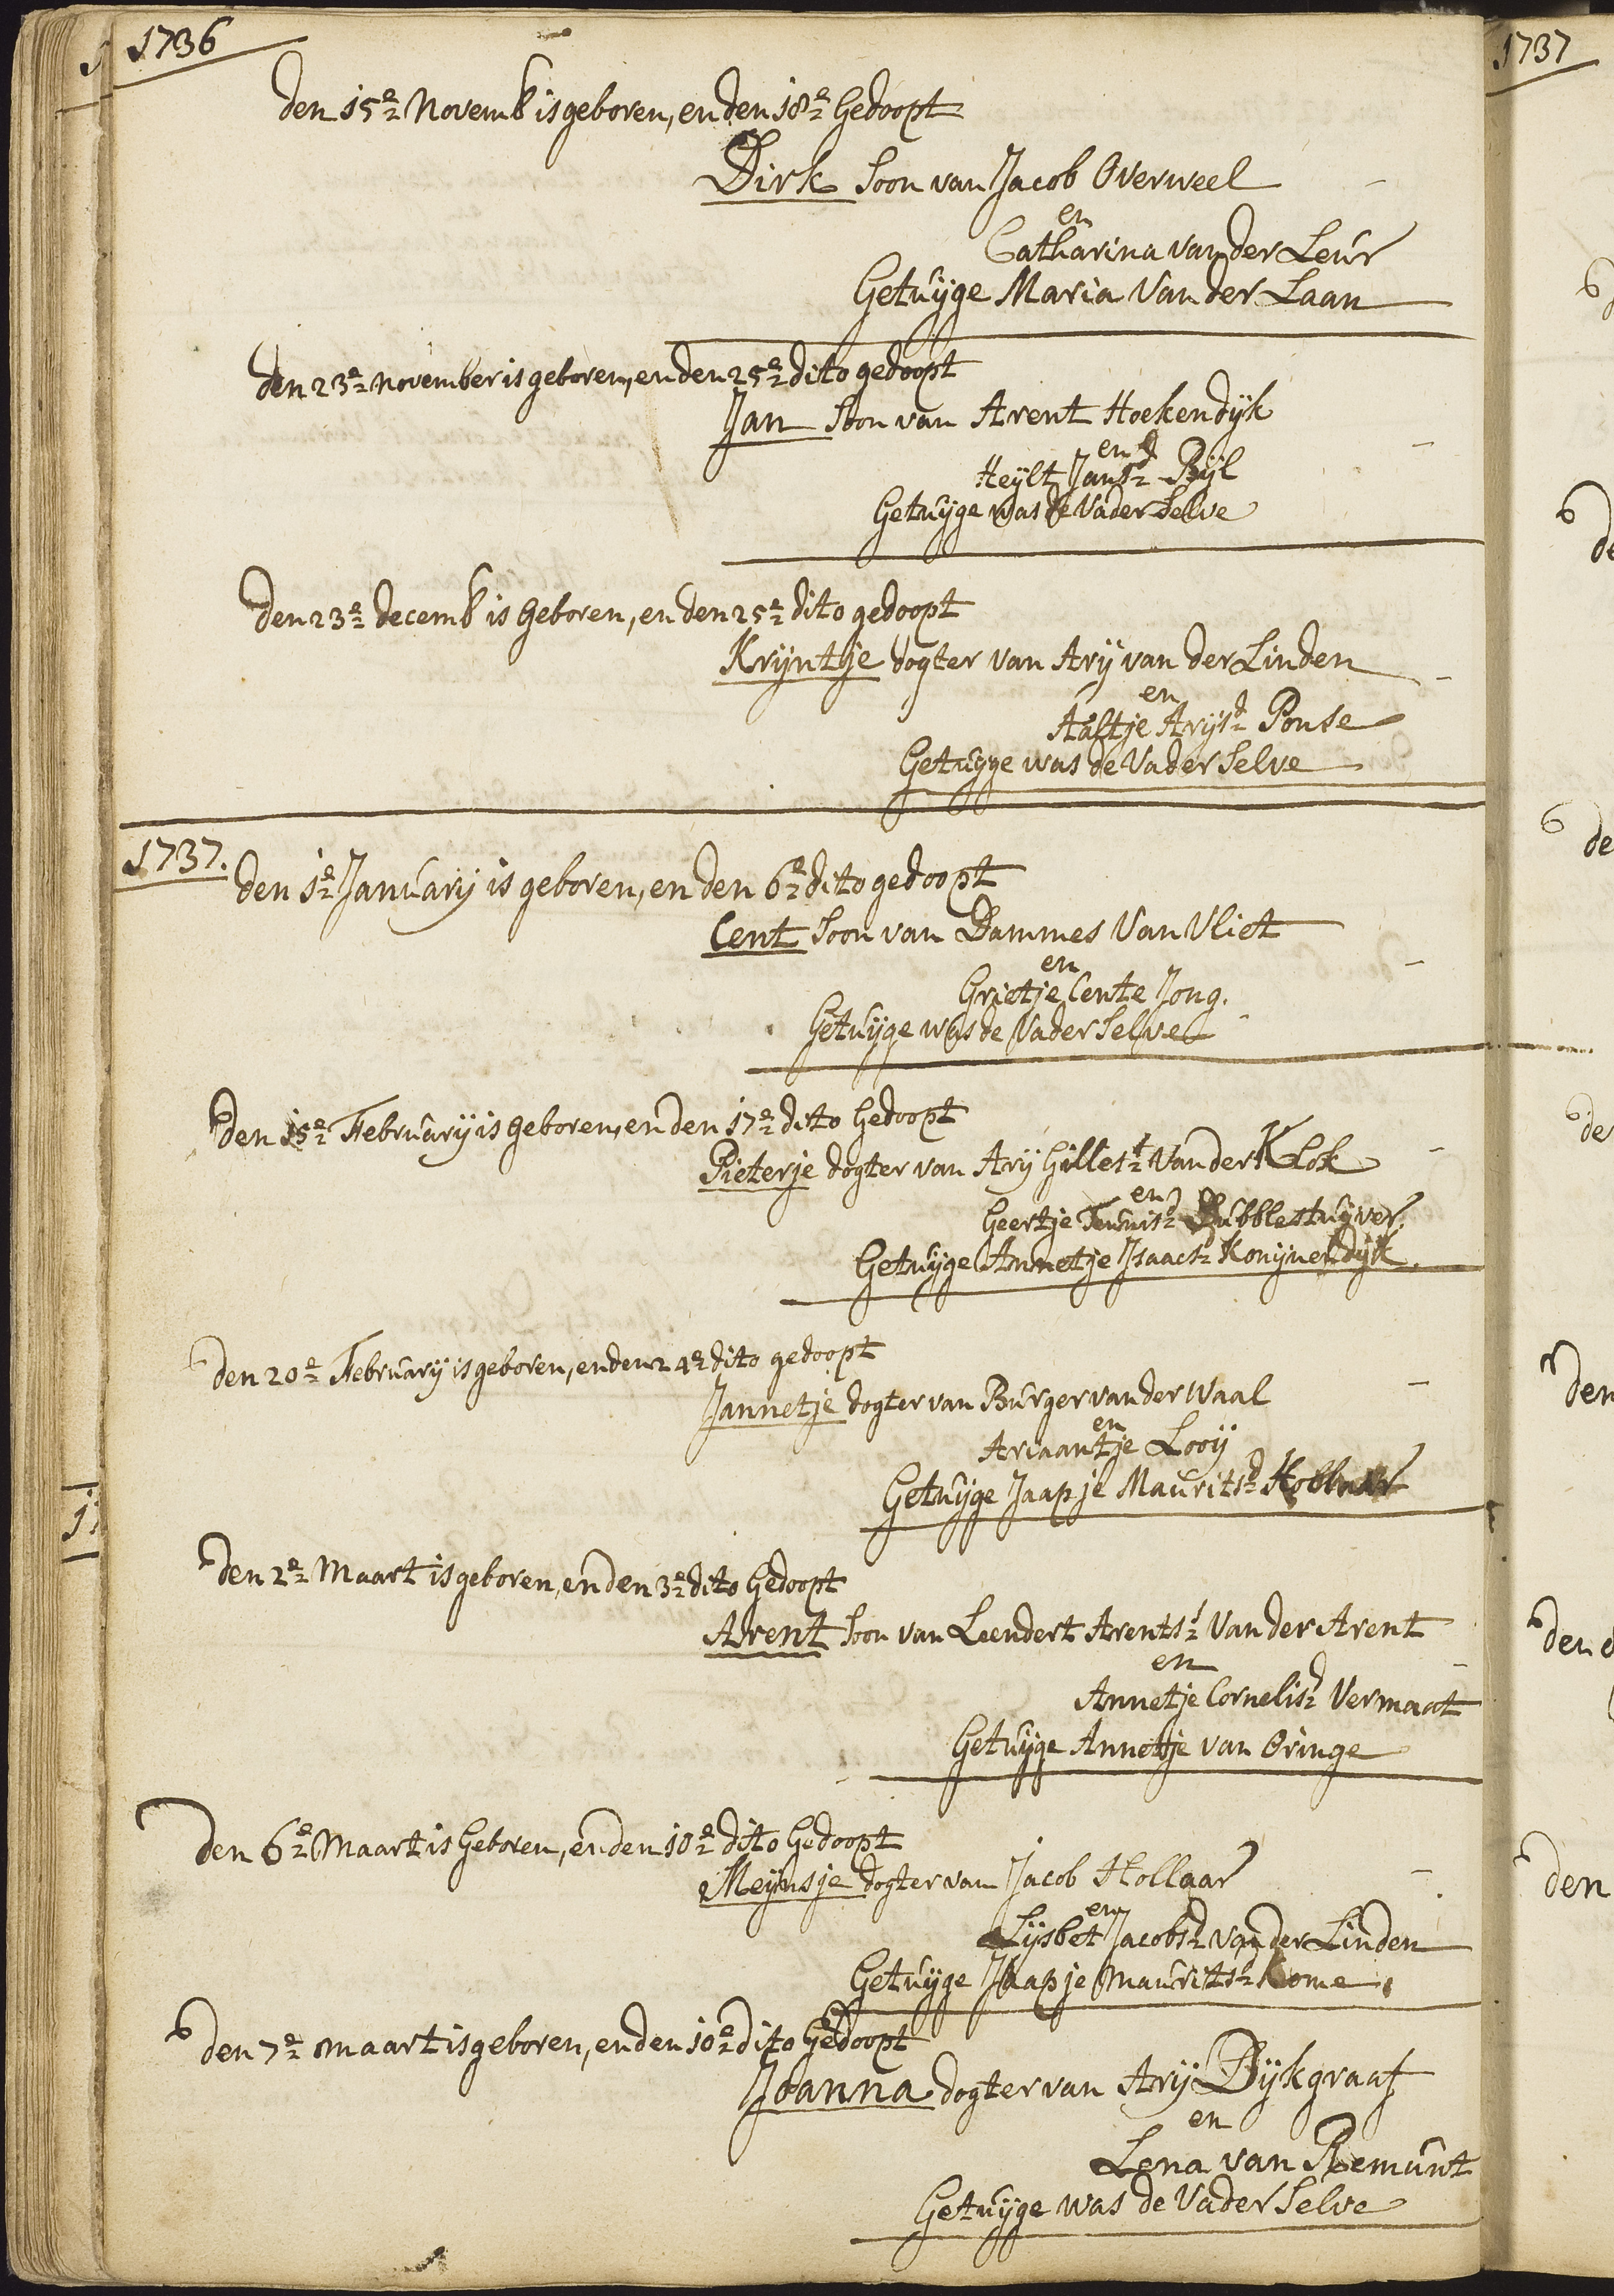 1736
den 15e Novemb is geboren, en den 18e Gedoopt
Dirk Soon van Jacob Overweel
en
Catharina van der Leur
Getuijge Maria Van der Laan
den 23e November is geboren, en den 25e dito gedoopt
Jan Soon van Arent Hoekendijk
en
Heijlt Jansd Bijl
Getuijge was de Vader Selve
den 23e decemb is Geboren, en den 25e dito gedoopt
Krijntje dogter van Arij van der Linden
en
Aaltje Arijsd Ponse
Getuijge was de Vader Selve
1737.
den 1e Januarij is geboren, en den 6e dito gedoopt
Cent Soon van Dammes Van Vliet
en
Grietje Cente Jong.
Getuijge was de Vader Selve
den 15e Februarij is Geboren, en den 17e dito Gedoopt
Pieterje dogter van Arij Gillest Van der Klok
en
Geertje Teunisd Dubblestuijver.
Getuijge Annetje Isaacsd Konijnendijk.
den 20e Februarij is geboren, en den 24e dito gedoopt
Jannetje dogter van Burger van der Waal
en
Ariaantje Looij
Getuijge Jaapje Mauritsd
den 2e Maart is geboren, en den 3e dito Gedoopt
Arent Soon van Leendert Arents Van der Arent
en
Annetje Cornelisd Vermaat
Getuijge Annetje van Oringe
den 6e Maart is Geboren, en den 10e dito Gedoopt
Meijnsje dogter van Jacob Hollaar
en
Lijsbet Jacobsd van der Linden
Getuijge Jaapje Mauritsd Kome.
den 7e Maart is geboren, en den 10e dito Gedoopt
Joanna dogter van Arij Dijkgraaf
en
Lena van Remunt
Getuijge was de Vader Selve
1737
de
de
de
den
den
den